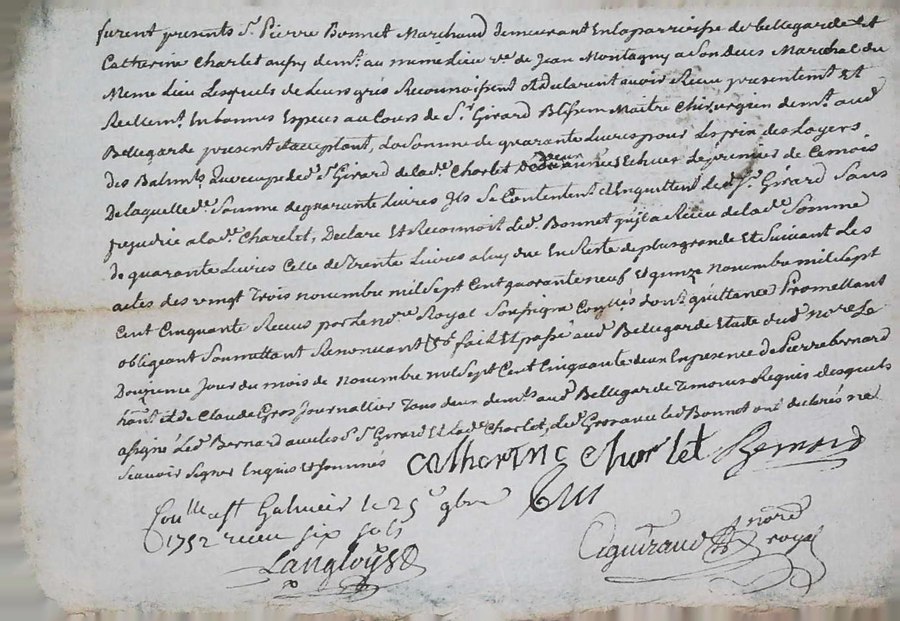 furent presents Sr. Pierre Bonnet Marchand demeurant En la parroisse de bellegarde Et
Catherine Charlet aussy demt. au meme Lieu vve de Jean Montagny a Son deces Marchal du
Meme Lieu Lesquels de Leurs grés Reconnoissent Et declarent avoir Receu presentemt. Et
Reellemt. En bonnes Especes au Cours de Sr. Girard Maitre Chirurgien demt. aud
Bellegarde present Et acceptant, La Somme de quarante Livres pour Le prix des Loyers
Des Batimts. que occupe led. Sr. Girard de lad. Charlet Echuer Le premier de Ce mois
De laquelle d. Somme de quarante Livres Ils Se Contentent Et En quittent led. Sr. Girard Sans
prejudice a lad. Charlet, Declare Et Reconnoit Led. Bonnet qu'il a Receu de lad. Somme
de quarante Livres Celle de Trente Livres a luy due En Reste de plus grande Et Suivant Les
actes des vingt Trois novembre mil Sept Cent quarante neuf Et quinze novembre mil Sept
Cent Cinquante Receus par Le nore Royal Soussigné dont quittance Promettant
obligeant Soumettant Renoncant &c. fait Et passé aud Bellegarde Etude dud nore Le
Douzieme Jour du mois de novembre mil Sept Cent Cinquante deux En presence de Pierre bernard
hant. Et de Claude Gros Journallier Tous deux demts. aud Bellegarde Temoins Requis desquels
a signé Led. Bernard avec les Sr. Girard Et Lad. Charlet, Led. Gros avec led Bonnet ont declarés ne
Scavoir Signer Enquis Et Sommés catherine charlet Bernard
Conlle a St Galmier le 25e 9bre
1752 receu six sols
Langloys
Aguiraud nore
royal